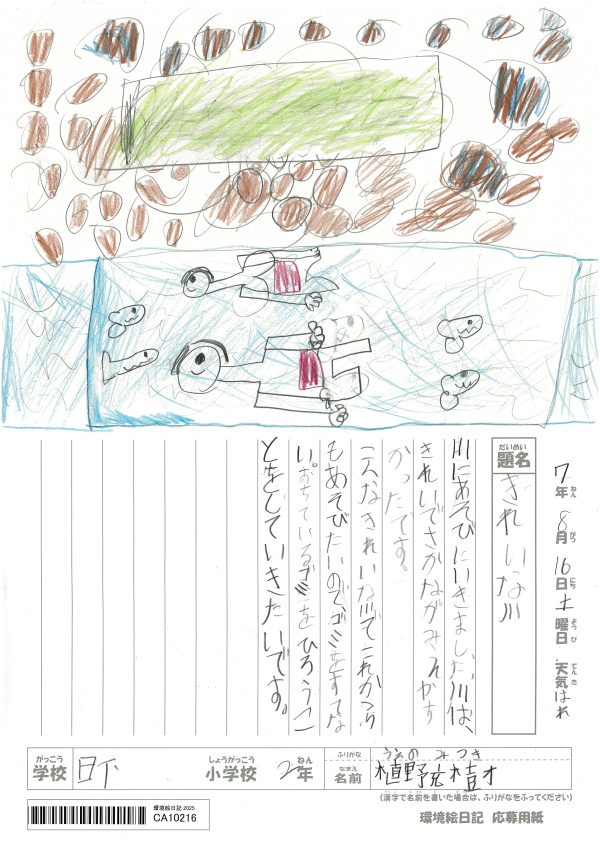 7年ねん 8月がつ 16日にち 土曜日ようび 天気てんき はれ
題名だいめい
きれいな川
川にあそびにいきました。川は、
きれいでさかながみえた
かったです。
こんなきれいな川でこれから
もあそびたいので、ゴミをすてな
い。おちているゴミをひろうこ
とをしていきたいです。
がっこう
学校 日下
しょうがっこう ねん
小学校 2年
ふりがな うえの みつき
なまえ
名前 植野
(漢字で名前を書いた場合は、ふりがなをふってください)
環境絵日記 2025
CA10216
環境絵日記 応募用紙